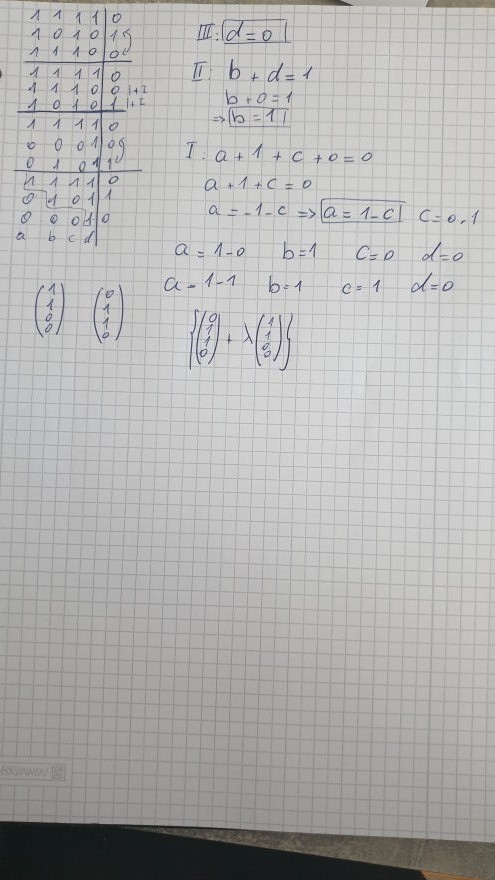 1 1 1 1 | 0
1 0 1 0 | 1
1 1 1 0 | 0
1 1 1 1 | 0
1 1 1 0 | 0 |+I
1 0 1 0 | 1 |+I
1 1 1 1 | 0
0 0 0 1 | 0
0 1 0 1 | 1
1 1 1 1 | 0
0 1 0 1 | 1
0 0 0 1 | 0
a b c d
III: d = 0
II: b + d = 1
b + 0 = 1
⇒ b = 1
I: a + 1 + c + 0 = 0
a + 1 + c = 0
a = -1 - c ⇒ a = 1 - c c = 0,1
a = 1-0 b=1 c=0 d=0
a = 1-1 b=1 c=1 d=0
(1 1 0 0) (0 1 1 0)
{(0 1 1 0) + λ (1 1 0 0)}